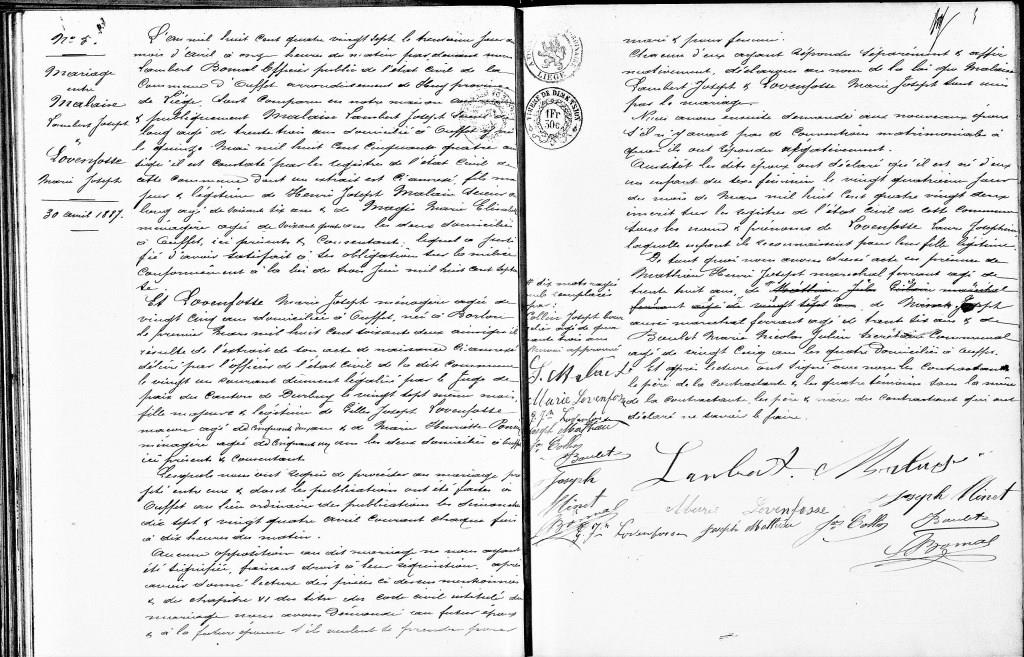 N° 5.
Mariage
entre
Malaise
Lambert Joseph
&
Lovenfosse
Marie Joseph
30 avril 1887.
L'an mil huit cent quatre vingt sept le trentième jour du
mois d'avril à onze heures du matin par devant nous
Lambert Bomal Officier public de l'état civil de la
Commune d'Ouffet arrondissement de Huy province
de Liège. Sont comparus en notre maison
& publiquement Malaise Lambert Joseph
âgé de trente trois ans domicilié à Ouffet
le quinze Mai mil huit cent cinquante quatre
qu'il est constaté par les registres de l'état civil de
cette commune dont un extrait est ci annexé, fils ma
jeur & légitime de Henri Joseph Malaise
âgé de soixante six ans & de Magis Marie Elisabeth
ménagère agée de soixante quatre ans les deux domiciliés
à Ouffet, ici présents & consentant; lequel a justi
fié d'avoir satisfait à ses obligations sur la milice
conformément à la loi de trois Juin mil huit cent septante
Et Lovenfosse Marie Joseph ménagère agée de
vingt cinq ans domiciliée à Ouffet, née à Borlon
le premier Mars mil huit cent soixante deux ainsi qu'il
résulte de l'extrait de son acte de naissance ci annexé
délivré par l'officier de l'état civil de la dite commune
le vingt six courant dûment légalisé par le Juge de
paix du Canton de Durbuy le vingt sept même mois,
fille majeure & légitime de Gilles Joseph Lovenfosse
maçon agé de cinquante ans & de Marie Henriette
ménagère agée de cinquante ans les deux domiciliés à Ouffet
ici présents & consentant.
Lesquels nous ont requis de procéder au mariage pro
jeté entre eux & dont les publications ont été faites à
Ouffet au lieu ordinaire des publications les dimanches
dix sept & vingt quatre avril courant chaque fois
à dix heures du matin.
Aucune opposition au dit mariage ne nous ayant
été signifiée, faisant droit à leur réquisition, après
avoir donné lecture des pièces ci dessus mentionnées
& du chapitre VI du titre du code civil intitulé du
mariage nous avons demandé au futur époux
& à la future épouse s'ils veulent se prendre pour
mari & pour femme.
Chacun d'eux ayant répondu séparément & affir
mativement, déclarons au nom de la loi que Malaise
Lambert Joseph & Lovenfosse Marie Joseph sont unis
par le mariage.
Nous avons ensuite demandé aux nouveaux époux
s'il n'y avait pas de convention matrimoniale à
quoi ils ont répondu négativement.
Aussitôt les dits époux ont déclaré qu'il est né d'eux
un enfant du sexe féminin le vingt quatrième jour
du mois de Mars mil huit cent quatre vingt deux
inscrit sur les registres de l'état civil de cette commune
sous les noms & prénoms de Lovenfosse Laure Joséphine
laquelle enfant ils reconnaissent pour leur fille légitime.
De tout quoi nous avons dressé acte en présence de
Mathieu Henri Joseph maréchal ferrant agé de
trente huit ans, de
ferrant agé de vingt sept ans de Minet Joseph
aussi maréchal ferrant agé de trente six ans & de
Boulet Marie Nicolas Julien Secrétaire Communal
agé de vingt cinq ans les quatre domiciliés à Ouffet.
Et après lecture ont signé avec nous les Contractants
le père de la contractante & les quatre témoins sauf la mère
de la contractante, les père & mère du contractant qui ont
déclaré ne savoir le faire.
dix mots rayés
remplacés
par
Collin Joseph
agé de qua
rante trois ans
approuvé
L. Malaise
Marie Lovenfosse
G. Jh Lovenfosse
Joseph Mathieu
Js Collin
Boulet
Joseph
Minet
Bomal
Lambert Malaise
Marie Lovenfosse
Joseph Minet
G. Jh Lovenfosse
Joseph Mathieu
Js Collin
Boulet
L Bomal
LIEGE
TIMBRE DE DIMENSION
1 Fr
30 c